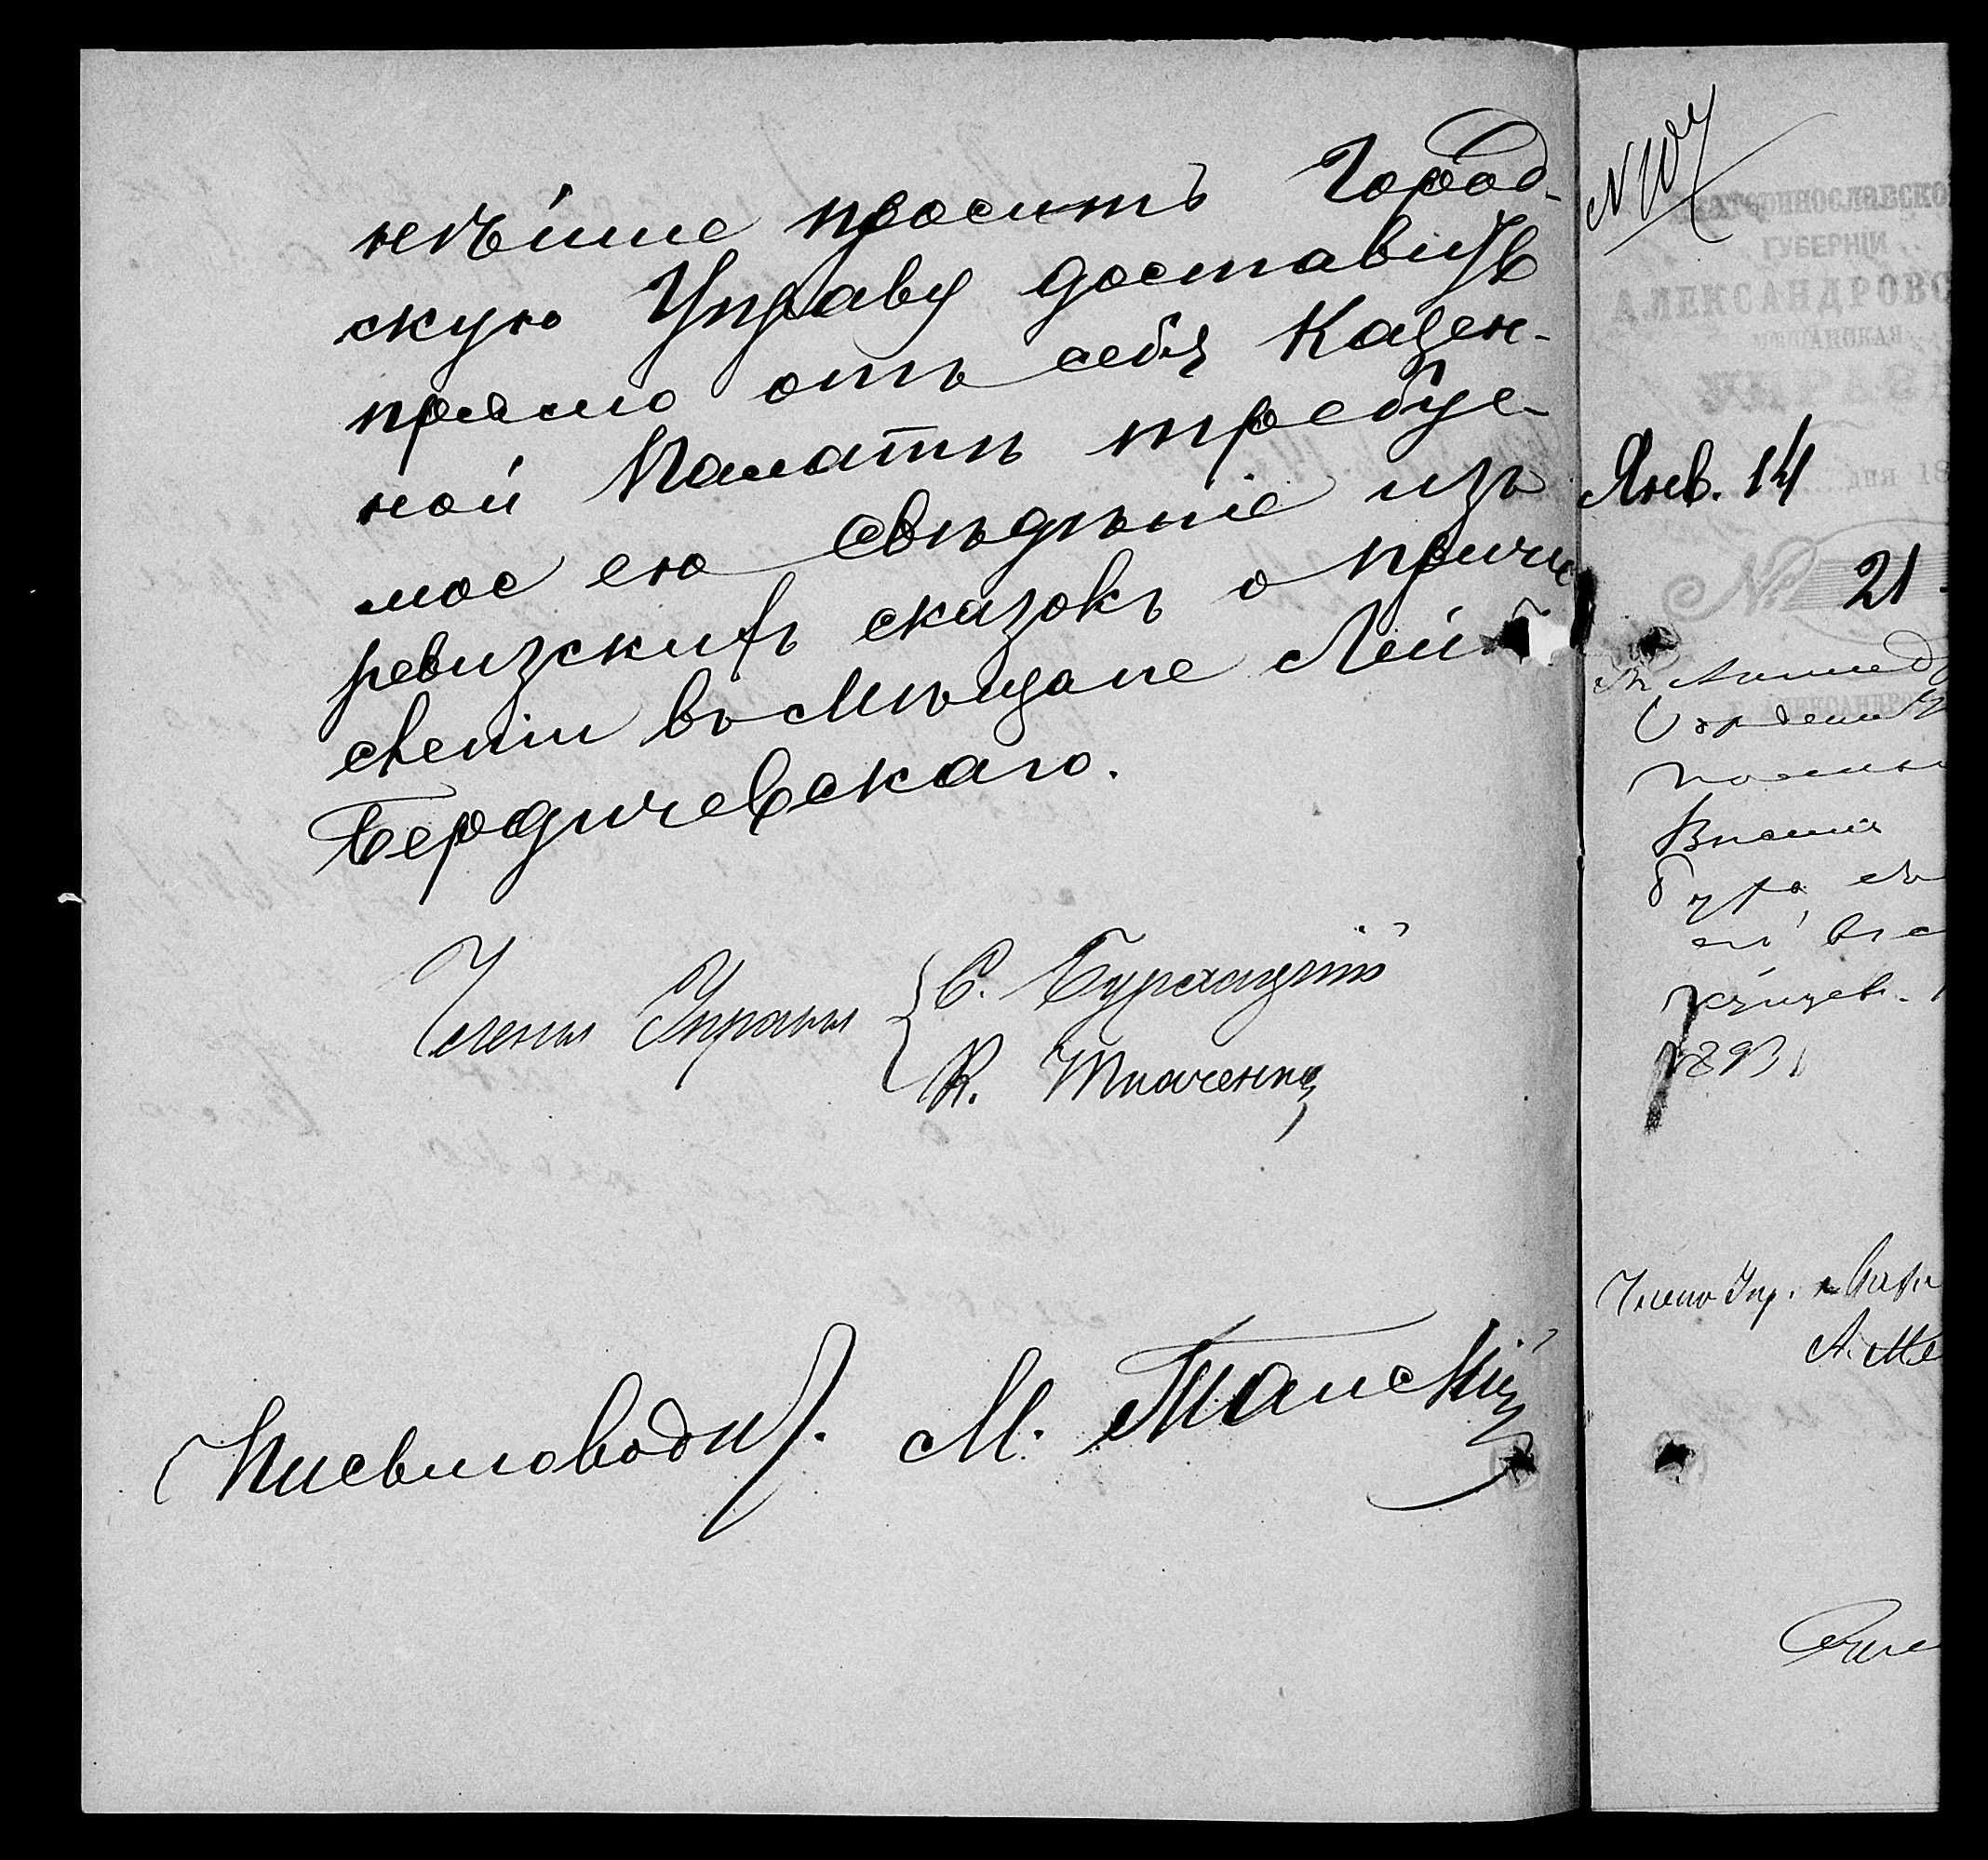 нѣйше проситъ Город-
скую Управу доставить
прямо отъ себя Казен-
ной Палатѣ требуе-
мое ею свѣдѣніе изъ
ревизскихъ сказокъ о причи
сленіи въ мѣщане Лей
Бердичевскаго.
Члены Управы
С. Бурхацкій
К. Ткаченко
Письмоводит. М. Танскій
N 107
ЕКАТЕРИНОСЛАВСКО
ГУБЕРНІИ
АЛЕКСАНДРОВС
МѢЩАНСКАЯ
УПРАВА
Янв. 14
дня 18
№ 21
АЛЕКСАНДРО
1893
Члено Упр.